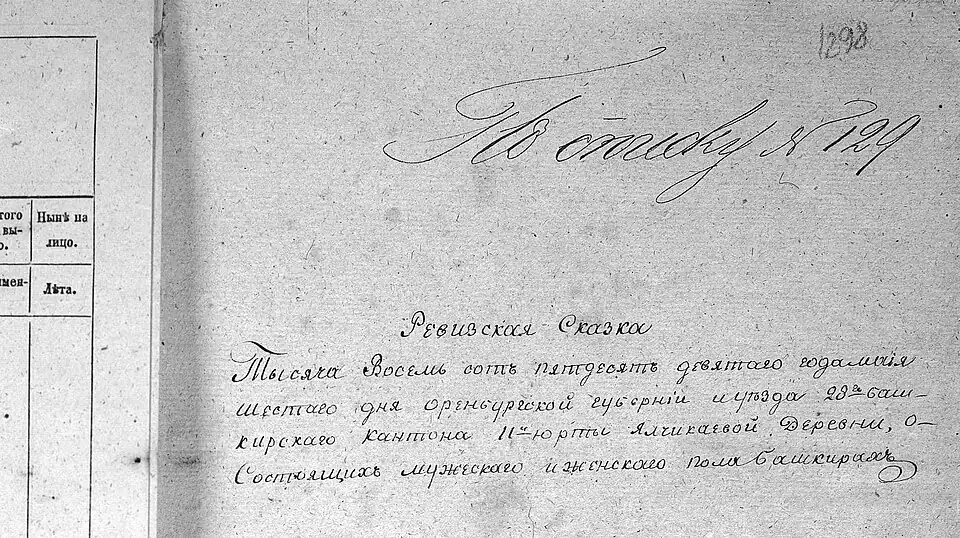 того
вы-
о.
Нынѣ на
лицо.
имен-
Лѣта.
1298
Къ списку № 129
Ревизская Сказка
Тысяча Восемь сотъ пятдесятъ девятаго года маія
шестаго дня Оренбургской губерніи и уѣзда 28го баш-
кирскаго кантона 11й юрты Ялчикаевой Деревни, о
Состоящихъ мужескаго и женскаго пола башкирахъ